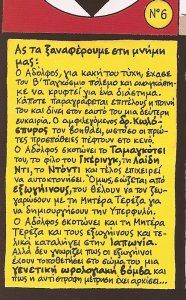 Νο 6
Ας τα ξαναφέρουμε στη μνήμη
μας:
Ο Αδόλφος, για κακή του τύχη, έχασε
τον Β' Παγκόσμιο πόλεμο και αναγκάστη-
κε να κρυφτεί για ένα διάστημα.
Κάποτε παραγράφεται επιτέλους η ποινή
του και δίνει στον εαυτό του μια δεύτερη
ευκαιρία. Ο αμφιλεγόμενος δρ. Κωλό-
σπυρος τον βοηθάει, ωστόσο οι πρώ-
τες προσπάθειες πέφτουν στο κενό.
Ο Αδόλφος σκοτώνει το Ταμαγκότσι
του, το φίλο του Γκέρινγκ, τη Λαίδη
Ντι, το Ντόντι και τέλος επιχειρεί
να αυτοκτονήσει. Όμως, σώζεται από
εξωγήινους, που θέλουν να τον ζευ-
γαρώσουν με τη Μητέρα Τερέζα για
να δημιουργήσουν την Υπερφυλή.
Ο Αδόλφος σκοτώνει και τη Μητέρα
Τερέζα και τους εξωγήινους και τε-
λικά καταλήγει στην Ιαπωνία.
Αλλά δεν γνωρίζει πως οι εξωγήινοι
έχουν τοποθετήσει στο σώμα του μια
γενετική ωρολογιακή βόμβα και
πως η αντίστροφη μέτρηση έχει αρχίσει...